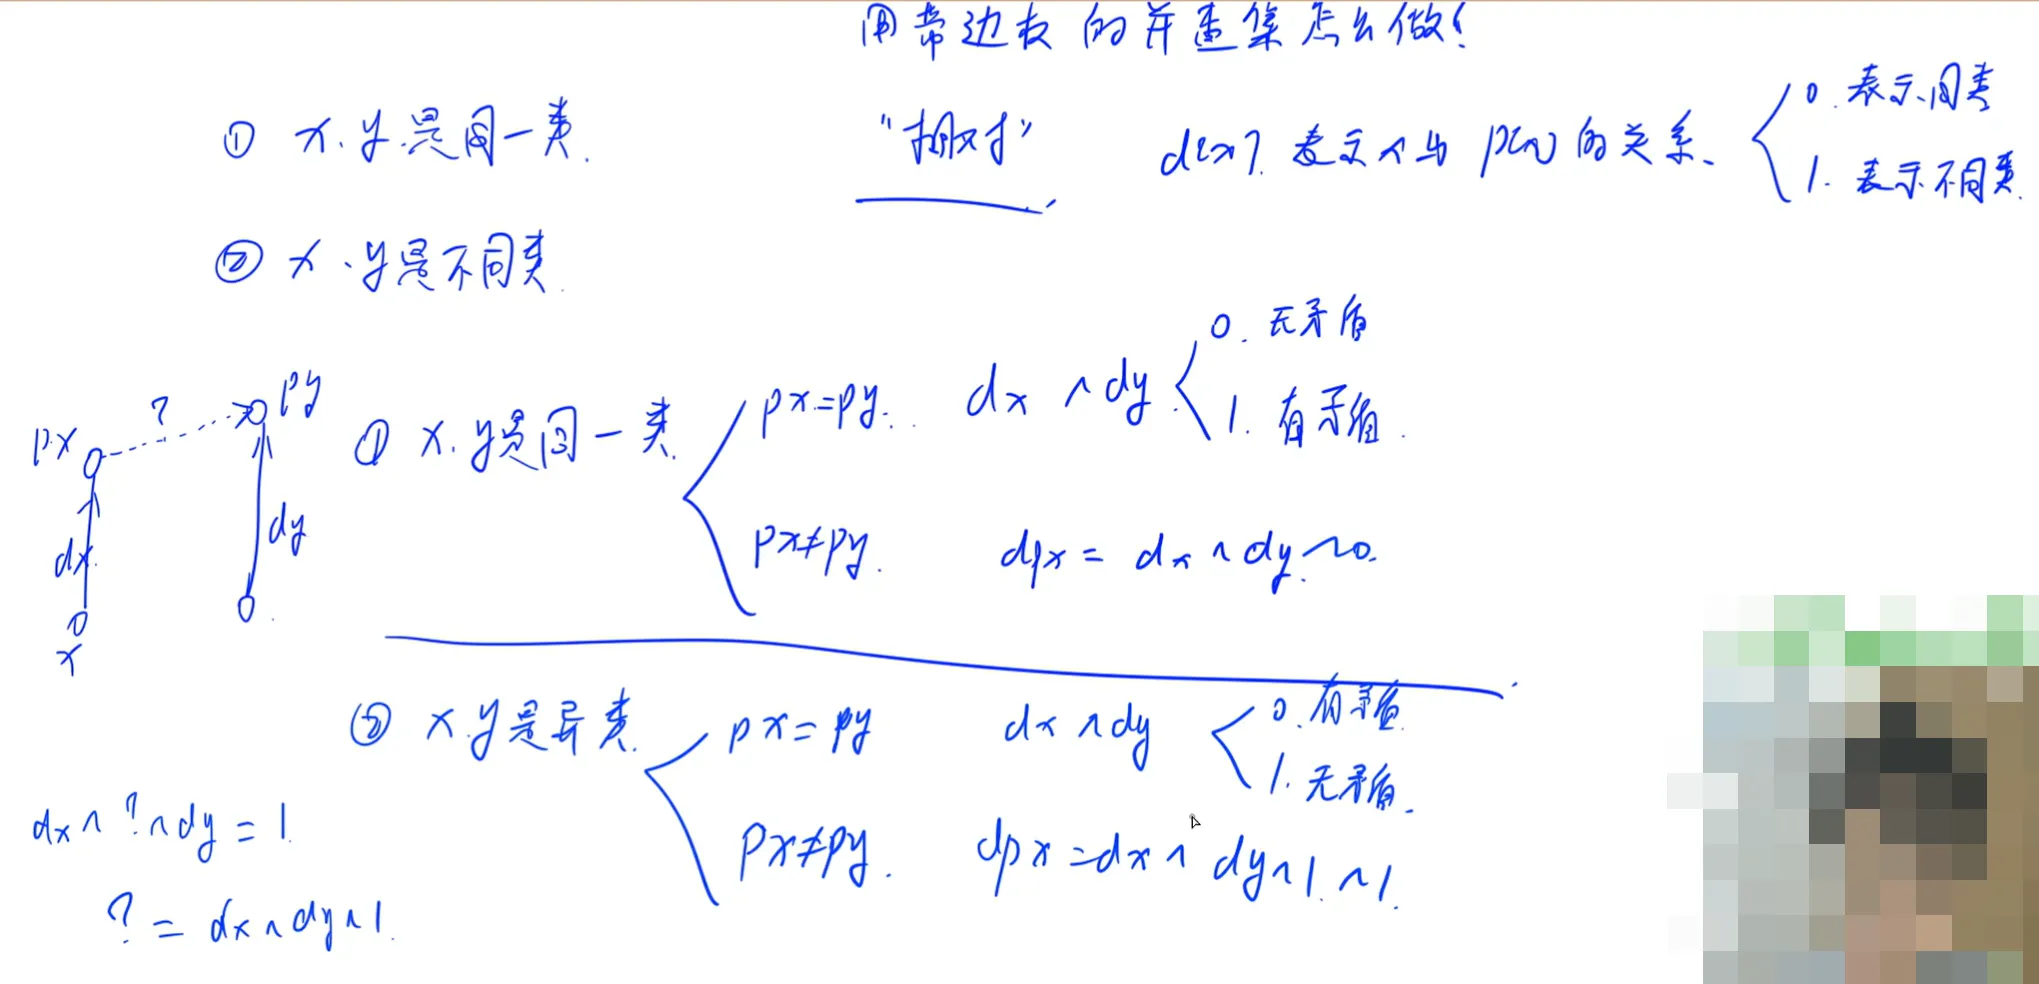 用带边权的并查集怎么做?
① x.y.是同一类.
"相对"
d[x]. 表示x与p[x]的关系、
0. 表示同类
1. 表示不同类.
② x.y是不同类.
px
?
py
dx
dy
x
① x.y是同一类.
px=py.
dx ^ dy
0. 无矛盾
1. 有矛盾.
px≠py.
dpx = dx ^ dy ^ 0.
② x.y是异类.
px = py
dx ^ dy
0. 有矛盾
1. 无矛盾.
px≠py.
dpx = dx ^ dy ^ 1. ^ 1.
dx ^ ? ^ dy = 1.
? = dx ^ dy ^ 1.